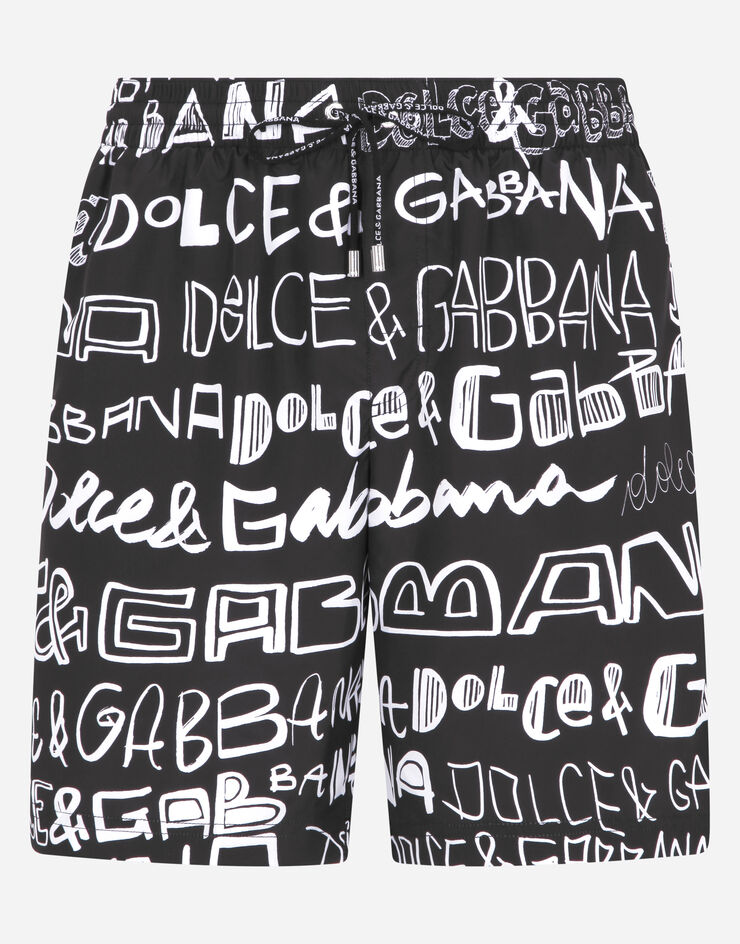 BANA DOLCE & GABBA
DOLCE & GABBANA
DOLCE & GABBANA
DOLCE & GABBANA
NA DOLCE & GABBANA
BBANA DOLCE & GabBA
Dolce & Gabbana dolce
& GABBANA
E & GABBANA DOLCE & G
CE & GAB BBANA NA DOLCE & GA
DOLCE & GABBANA